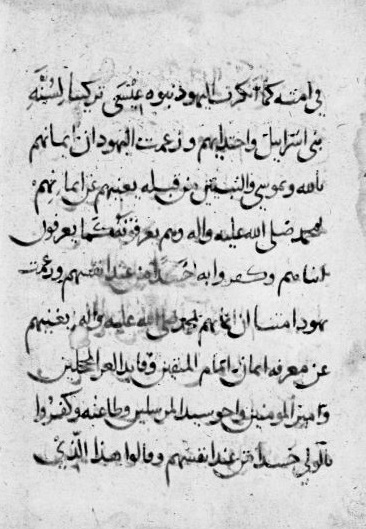 في امته كما انكرت اليهود نبوه عيسى تركيبا لسنة
بني اسرائيل واحتذا بهم وزعمت اليهود ان ايمانهم
بالله وبموسى والنبيين من قبله يغنيهم عن ايمانهم
بمحمد صلى الله عليه واله وهم يعرفونه كما يعرفون
ابناهم وكفروا به حسدا من عند انفسهم وزعمت
يهود امتنا ان ايمانهم بمحمد صلى الله عليه واله يغنيهم
عن معرفه امام المتقين وقايد الغر المحجلين
وامير المومنين واخو سيد المرسلين وطاعته وكفروا
بالولي حسدا من عند انفسهم وقالوا هذا الذي